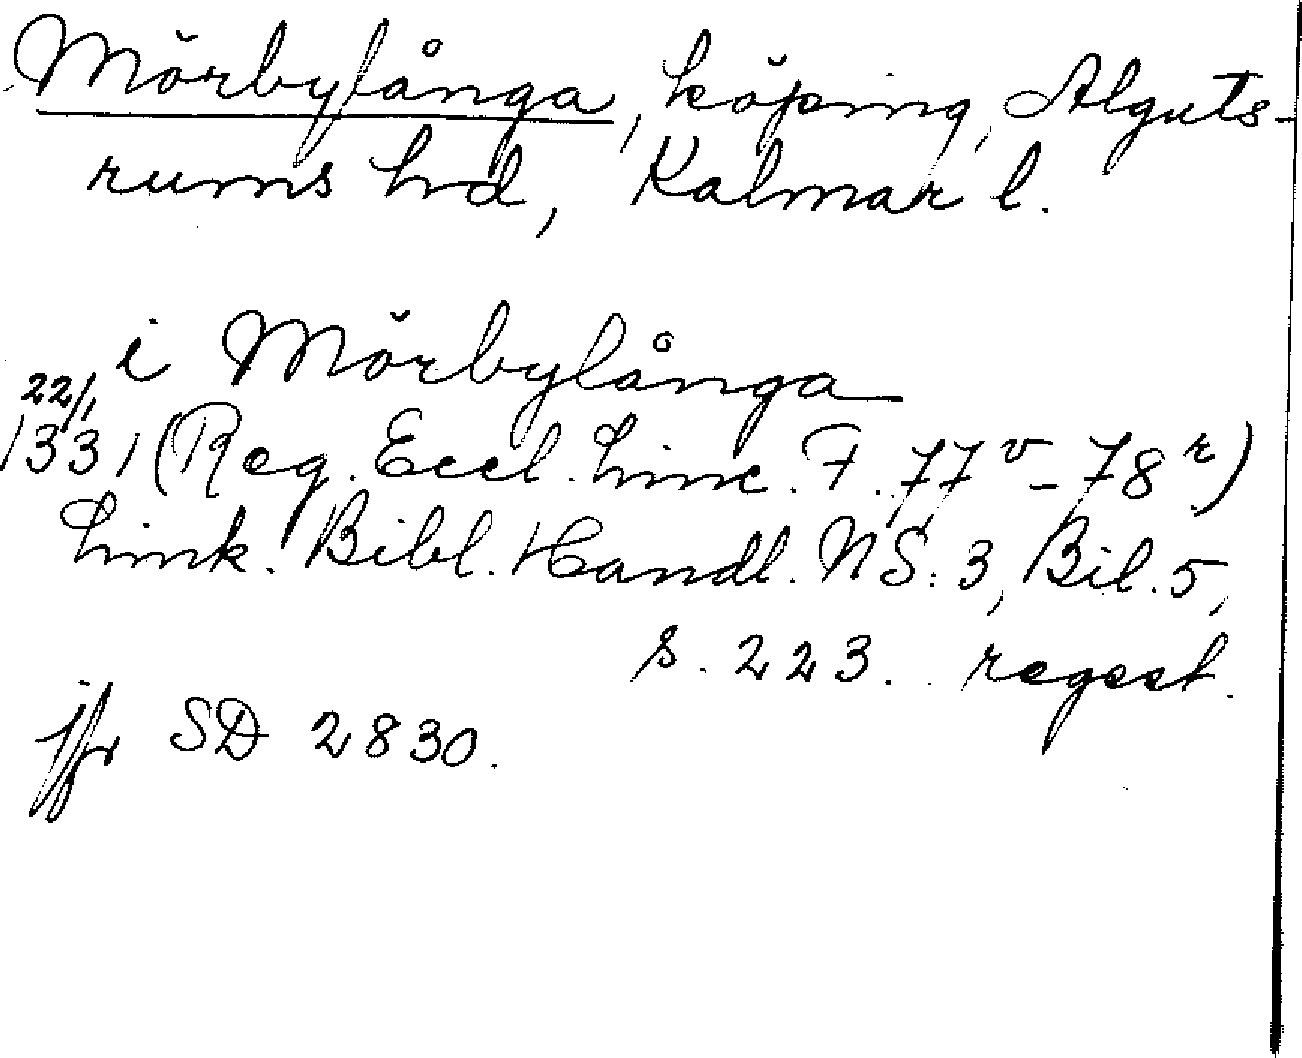 Mörbylånga, köping, Alguts-
rums hd, Kalmar l.
i Mörbylånga
22/1
1331 (Reg. Eccl. Linc. F. 77v - 78r)
Link. Bibl. Handl. NS: 3, Bil. 5,
s. 223. regest.
jfr SD 2830.